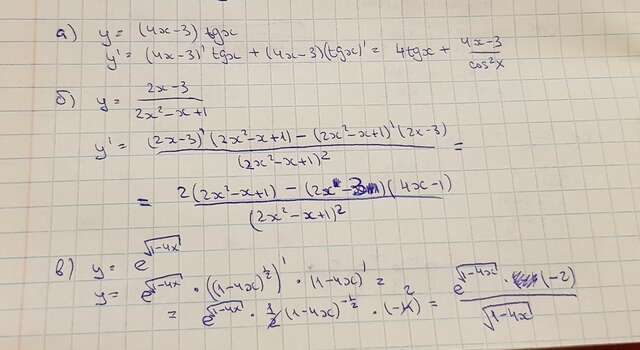 а) y = (4x-3) tgx
y' = (4x-3)' tgx + (4x-3)(tgx)' = 4tgx + \frac{4x-3}{cos²x}
б) y = \frac{2x-3}{2x²-x+1}
y' = \frac{(2x-3)'(2x²-x+1) - (2x²-x+1)'(2x-3)}{(2x²-x+1)²} =
= \frac{2(2x²-x+1) - (2x-3)(4x-1)}{(2x²-x+1)²}
в) y = e^{\sqrt{1-4x}}
y = e^{\sqrt{1-4x}} · ((1-4x)^{\frac{1}{2}})' · (1-4x)' =
= e^{\sqrt{1-4x}} · \frac{1}{2}(1-4x)^{-\frac{1}{2}} · (-4) 2 = \frac{e^{\sqrt{1-4x}} · (-2)}{\sqrt{1-4x}}